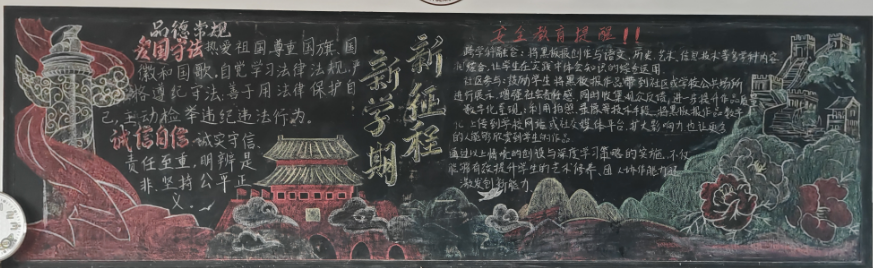 品德常规
爱国守法:热爱祖国,尊重国旗、国
徽和国歌,自觉学习法律法规,严
格遵纪守法,善于用法律保护自
己,主动检举违纪违法行为。
诚信自信:诚实守信、
责任至重,明辨是
非,坚持公平正
义。
新征程
新学期
安全教育提醒!!
跨学科融合:将黑板报创作与语文、历史、艺术、信息技术等多学科内容
结合,让学生在实践中体会知识的综合运用。
社区参与:鼓励学生将黑板报作品带到社区或学校公共场所
进行展示,增强社会责任感,同时收集观众反馈,进一步提升作品质量
数字化呈现:利用拍照、录屏等技术手段,将黑板报作品数字
化,上传到学校网站或社交媒体平台,扩大影响力也让更多
的人能欣赏到学生的作品
通过以上模块的创设与深度学习策略的实施,不仅
能有效提升学生的艺术修养、团队协作能力
激发创新能力